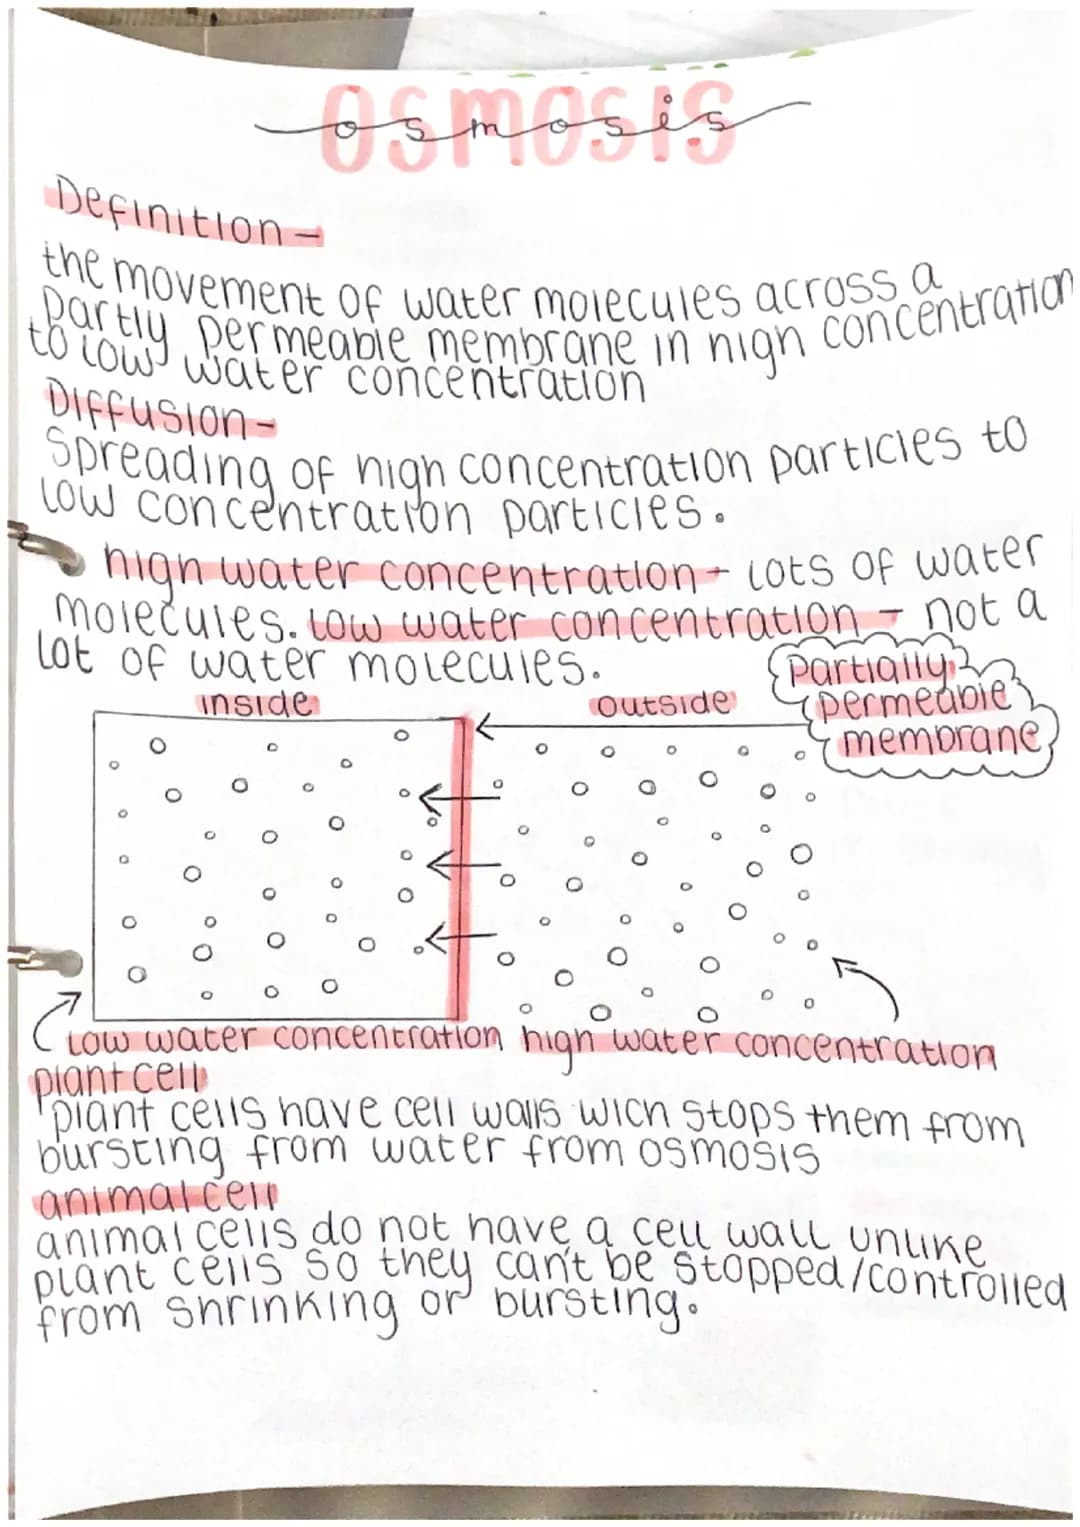 osmosis
Definition -
the movement of water molecules across a
partly permeable membrane in high concentration
to low water concentration
Diffusion -
Spreading of high concentration particles to
low concentration particles.
high water concentration - Lots of water
molecules. Low water concentration - not a
lot of water molecules.
inside
outside
Partially
permeable
membrane
Low water concentration
high water concentration
plant cell
plant cells have cell walls wich stops them from
bursting from water from osmosis
animal cell
animal cells do not have a cell wall unlike
plant cells so they can't be stopped/controlled
from shrinking or bursting.